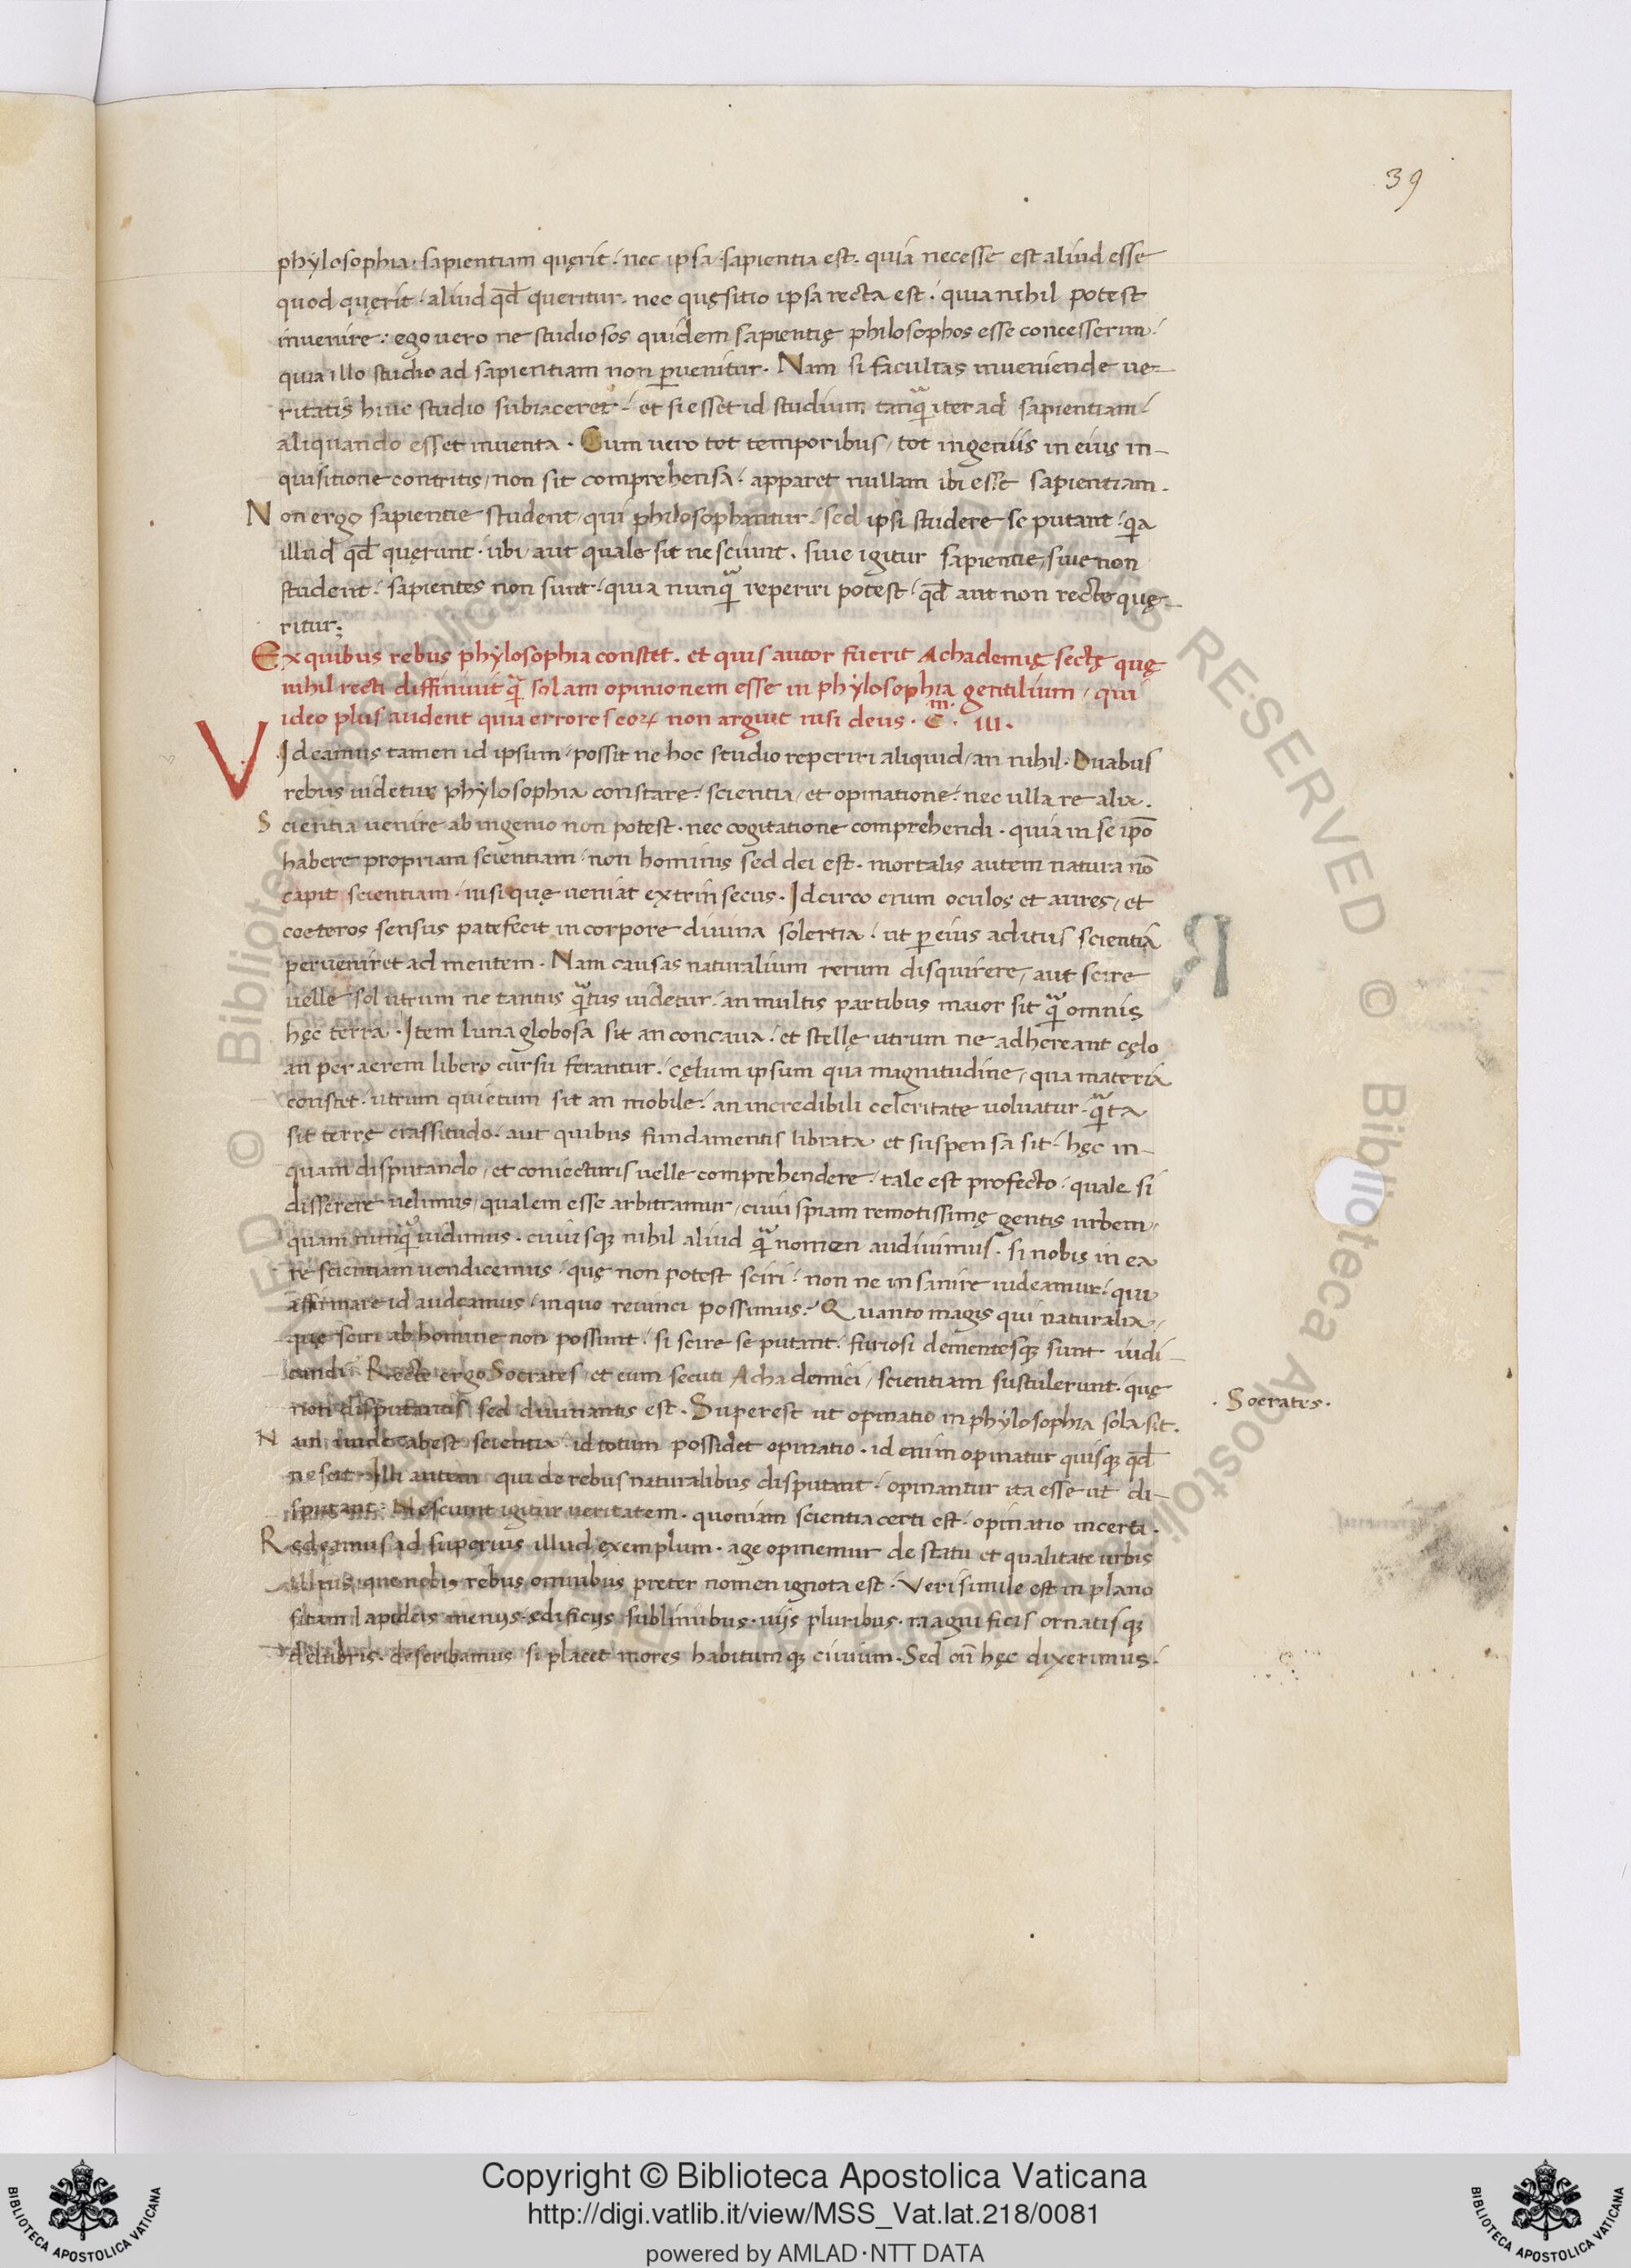 39
phylosophia · sapientiam quęrit · nec ipsa sapientia est · quia necesse est aliud esse
quod quęrit · aliud qđ queritur · nec quęsitio ipsa recta est · quia nihil potest
invenire : ego vero ne studiosos quidem sapientię philosophos esse concesserim ·
quia illo studio ad sapientiam non ꝑvenitur · Nam si facultas inveniende ve-
ritatis huic studio subiaceret · et si esset id studium tanꝙ iter ad sapientiam ·
aliquando esset inventa · Cum vero tot temporibus / tot ingeniis in eius in-
quisitione contritis / non sit comprehensa · apparet nullam ibi esse sapientiam ·
Non ergo sapientie student / qui philosophantur · sed ipsi studere se putant · qa
illud qđ quęrunt · ubi / aut quale sit nesciunt · sive igitur sapientie / sive non
student · sapientes non sunt · quia nunꝙ reperiri potest · qđ aut non recte quę-
ritur;
Ex quibus rebus phylosophia constet · et quis autor fuerit Achademię sectę quę
nihil recti diffinivit ꝙ solam opinionem esse in phylosophia gentilium / qui
ideo plus audent quia errores eoꝝ non arguit nisi deus · C · m · III ·
VIdeamus tamen id ipsum · possit ne hoc studio reperiri aliquid / an nihil · Duabus
rebus videtur phylosophia constare · scientia / et opinatione · nec ulla re alia ·
Scientia venire ab ingenio non potest · nec cogitatione comprehendi · quia in se ip̄o
habere propriam scientiam · non hominis sed dei est · mortalis autem natura nō
capit scientiam · nisi quę veniat extrinsecus · Idcirco enim oculos et aures / et
coeteros sensus patefecit in corpore divina solertia · ut ꝑ eius aditus scientia
perveniret ad mentem · Nam causas naturalium rerum disquirere / aut scire
velle · sol utrum ne tantus ꝙtus videtur · an multis partibus maior sit ꝙ omnis
hęc terra · Item luna globosa sit an concava · et stellę utrum ne adhereant cęlo
an per aerem libero cursu ferantur · cęlum ipsum qua magnitudine / qua materia
constet · utrum quietum sit an mobile · an incredibili celeritate volvatur · ꝙta
sit terrę crassitudo · aut quibus fundamentis librata et suspensa sit · hęc in-
quam disputando / et coniecturis velle comprehendere · tale est profecto · quale si
disserere velimus / qualem esse arbitramur / cuiuspiam remotissimę gentis urbem /
quam nunꝙ vidimus · cuiusq nihil aliud ꝙ nomen audivimus · si nobis in ea
re scientiam vendicemus · quę non potest sciri · non ne insanire videamur · qui
affirmare id audeamus · in quo revinci possimus · Quanto magis qui naturalia /
quę sciri ab homine non possunt · si scire se putant · furiosi dementesq sunt iudi-
candi · Recte ergo Socrates / et eum secuti Achademici / scientiam sustulerunt · quę
· Socrates ·
non disputantis sed divinantis est · Superest ut opinatio in phylosophia sola sit ·
Nam unde abest scientia · id totum possidet opinatio · id enim opinatur quisq qđ
nescit · Illi autem qui de rebus naturalibus disputant · opinantur ita esse ut di-
sputant · Nesciunt igitur veritatem · quoniam scientia certi est · opinatio incerti ·
Redeamus ad superius illud exemplum · age opinemur de statu et qualitate urbis
illius · que nobis rebus omnibus preter nomen ignota est · Verisimile est in plano
sitam lapideis menijs · ędificijs sublimibus · vijs pluribus · magnificis ornatisq
delubris · describamus si placet mores habitumq civium · Sed cū hęc dixerimus ·
Copyright © Biblioteca Apostolica Vaticana
http://digi.vatlib.it/view/MSS_Vat.lat.218/0081
powered by AMLAD·NTT DATA
BIBLIOTECA APOSTOLICA VATICANA
BIBLIOTECA APOSTOLICA VATICANA